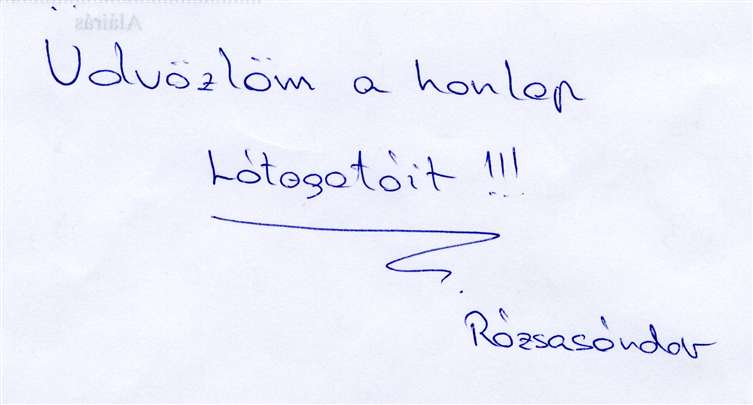 Aláírás
Üdvözlöm a honlap
Látogatóit !!!
Rózsasándor